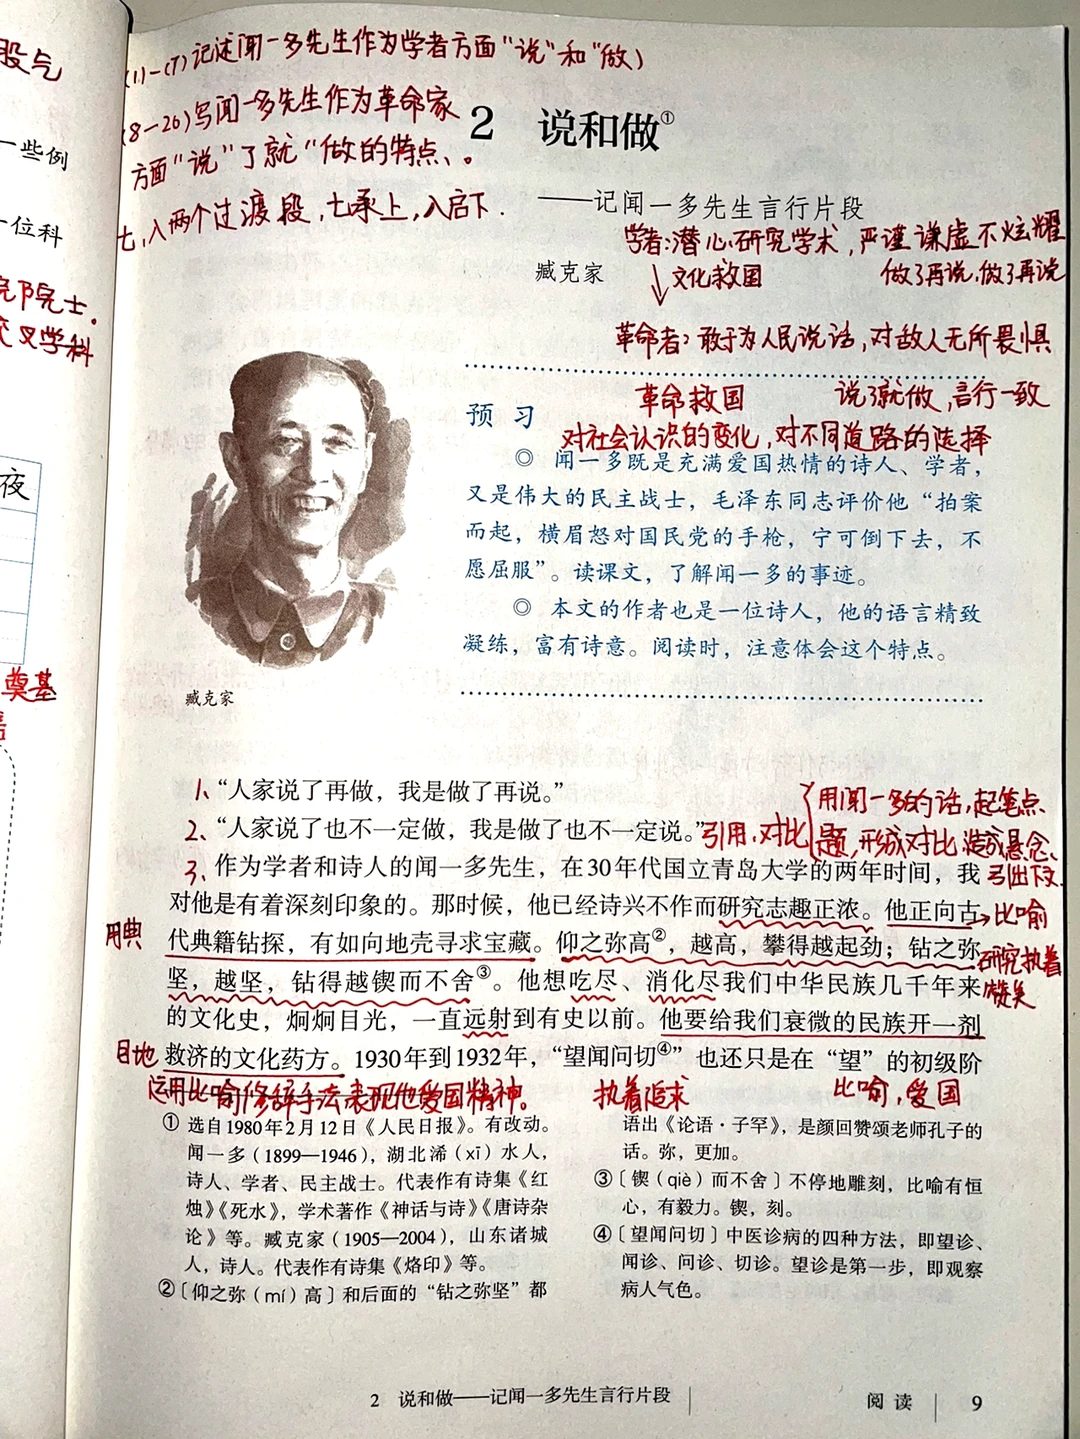 股气
一些例
一位科
院院士.
交叉学科
夜
奠基
(1)-(7)记述闻一多先生作为学者方面"说"和"做)
(8-20)写闻一多先生作为革命家
方面"说"了就"做的特点、。
七、入两个过渡段,七承上,入启下.
2 说和做①
——记闻一多先生言行片段
学者:潜心研究学术,严谨谦虚不炫耀
臧克家
文化救国
做了再说,做了再说
革命者:敢于为人民说话,对敌人无所畏惧
革命救国
说了就做,言行一致
对社会认识的变化,对不同道路的选择
预习
◎ 闻一多既是充满爱国热情的诗人、学者,
又是伟大的民主战士,毛泽东同志评价他“拍案
而起,横眉怒对国民党的手枪,宁可倒下去,不
愿屈服”。读课文,了解闻一多的事迹。
◎ 本文的作者也是一位诗人,他的语言精致
凝练,富有诗意。阅读时,注意体会这个特点。
臧克家
1、“人家说了再做,我是做了再说。”
用闻一多的话,起笔点
2、“人家说了也不一定做,我是做了也不一定说。”
引用,对比
题,形成对比,造成悬念、
3、作为学者和诗人的闻一多先生,在30年代国立青岛大学的两年时间,我
引出下文.
对他是有着深刻印象的。那时候,他已经诗兴不作而研究志趣正浓。他正向古
比喻
用典
代典籍钻探,有如向地壳寻求宝藏。仰之弥高②,越高,攀得越起劲;钻之弥
研究执着
坚,越坚,钻得越锲而不舍③。他想吃尽、消化尽我们中华民族几千年来
赞美
的文化史,炯炯目光,一直远射到有史以前。他要给我们衰微的民族开一剂
目地
救济的文化药方。1930年到1932年,“望闻问切④”也还只是在“望”的初级阶
运用比喻修辞手法表现他爱国精神。
执着追求
比喻,爱国
① 选自1980年2月12日《人民日报》。有改动。
闻一多(1899—1946),湖北浠(xī)水人,
诗人、学者、民主战士。代表作有诗集《红
烛》《死水》,学术著作《神话与诗》《唐诗杂
论》等。臧克家(1905—2004),山东诸城
人,诗人。代表作有诗集《烙印》等。
②〔仰之弥(mí)高〕和后面的“钻之弥坚”都
语出《论语·子罕》,是颜回赞颂老师孔子的
话。弥,更加。
③〔锲(qiè)而不舍〕不停地雕刻,比喻有恒
心,有毅力。锲,刻。
④〔望闻问切〕中医诊病的四种方法,即望诊、
闻诊、问诊、切诊。望诊是第一步,即观察
病人气色。
2 说和做——记闻一多先生言行片段
阅读 9